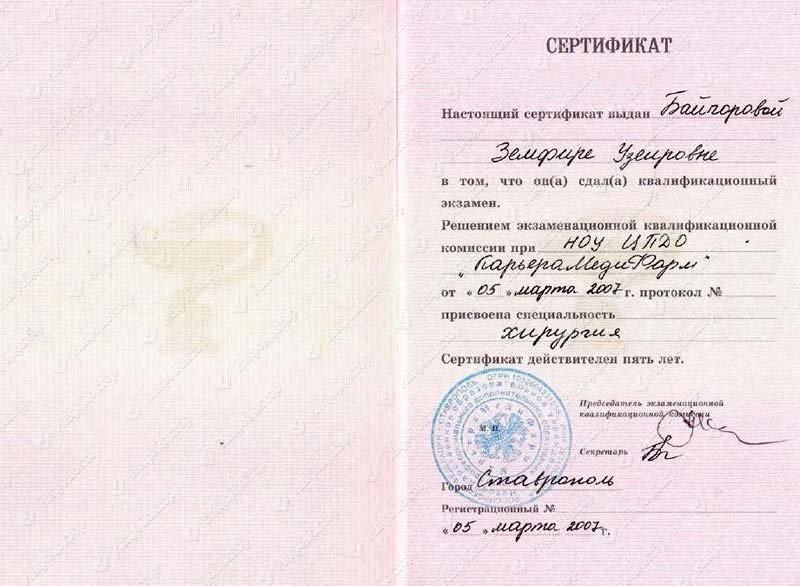 СЕРТИФИКАТ
Настоящий сертификат выдан Байчоровой
Земфире Узеировне
в том, что он(а) сдал(а) квалификационный
экзамен.
Решением экзаменационной квалификационной
комиссии при НОУ ЦПДО
„КарьераМедиФарм"
от «05» марта 2007 г. протокол №
присвоена специальность
хирургия
Сертификат действителен пять лет.
Председатель экзаменационной
квалификационной комиссии
М. П.
Секретарь
Город Ставрополь
Регистрационный №
«05» марта 2007 г.